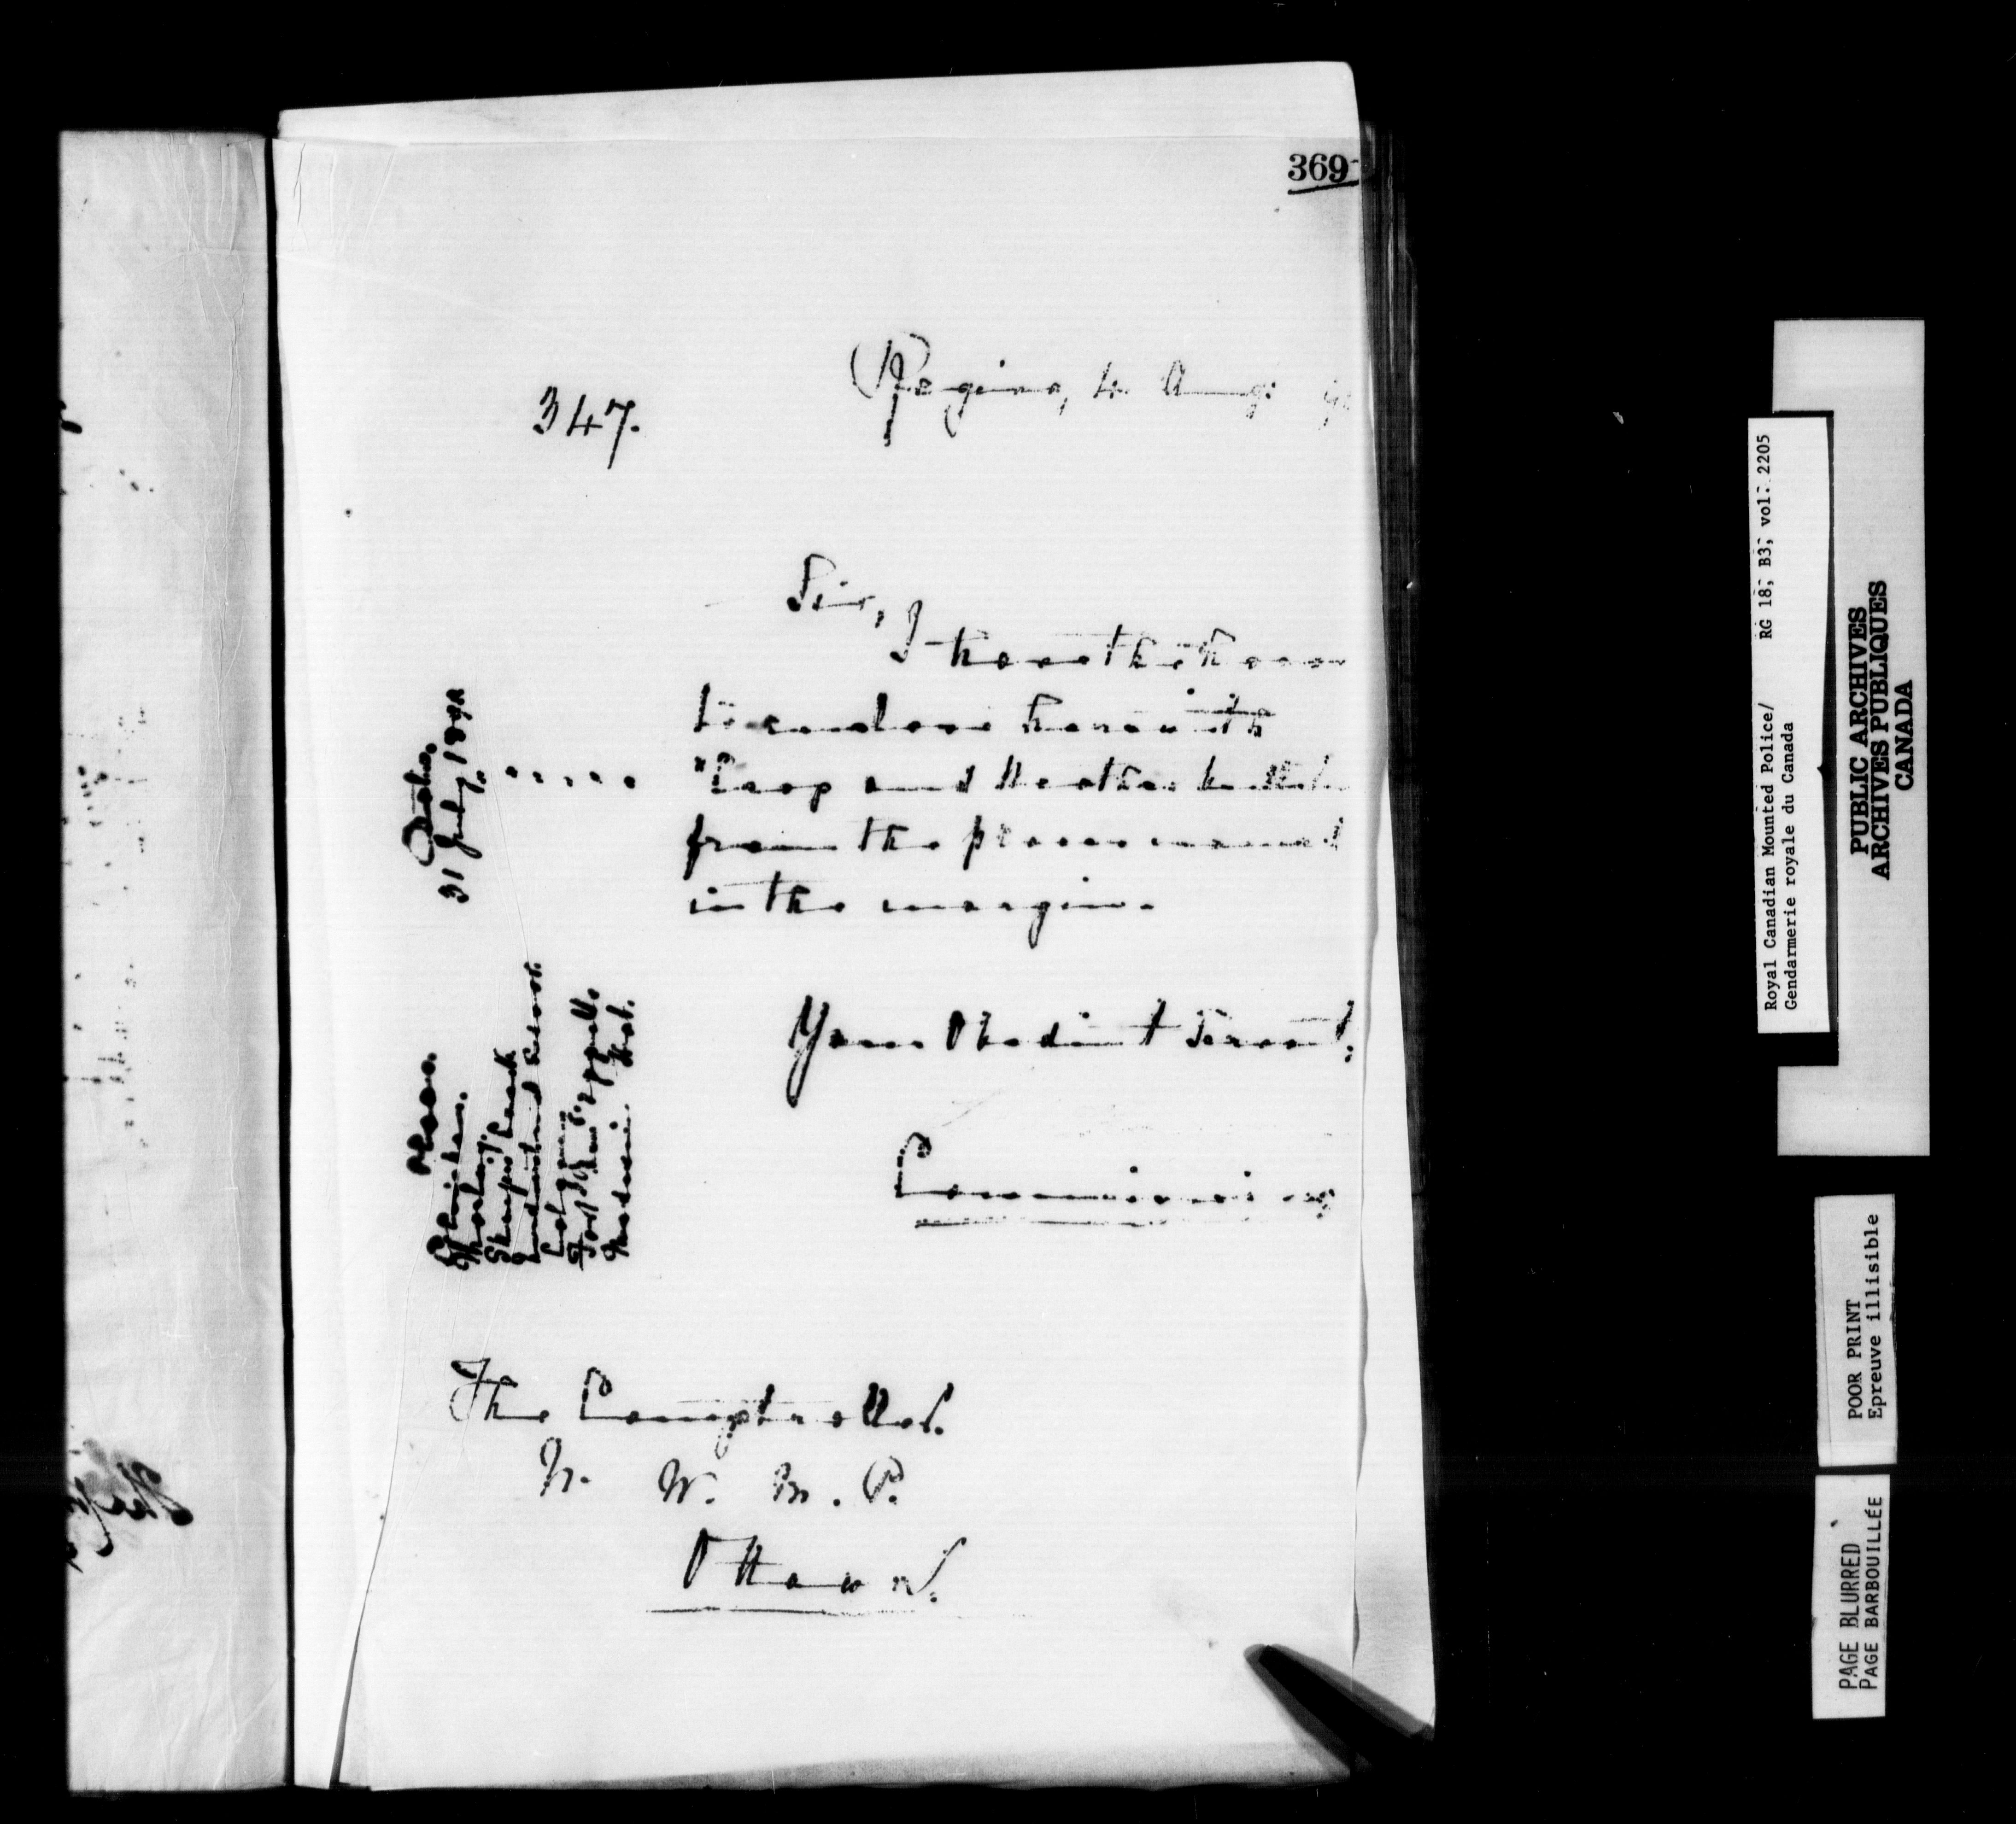 369
347.
Regina, 4. Aug:
Sir,
I have the honor
to enclose herewith
"Crop and Weather bulletin
from the places named
in the margin.
Date.
31 July 1892
" " " " "
Place.
Estevan.
Moosomin.
Maple Creek
Calgary
Fort Qu'Appelle
Medicine Hat.
Your Obedient Servant.
Commissioner
The Comptroller.
N. W. M. P.
Ottawa.
Royal Canadian Mounted Police/ RG 18, B3, vol. 2205
Gendarmerie royale du Canada
PUBLIC ARCHIVES
ARCHIVES PUBLIQUES
CANADA
POOR PRINT
Epreuve illisible
PAGE BLURRED
PAGE BARBOUILLÉE